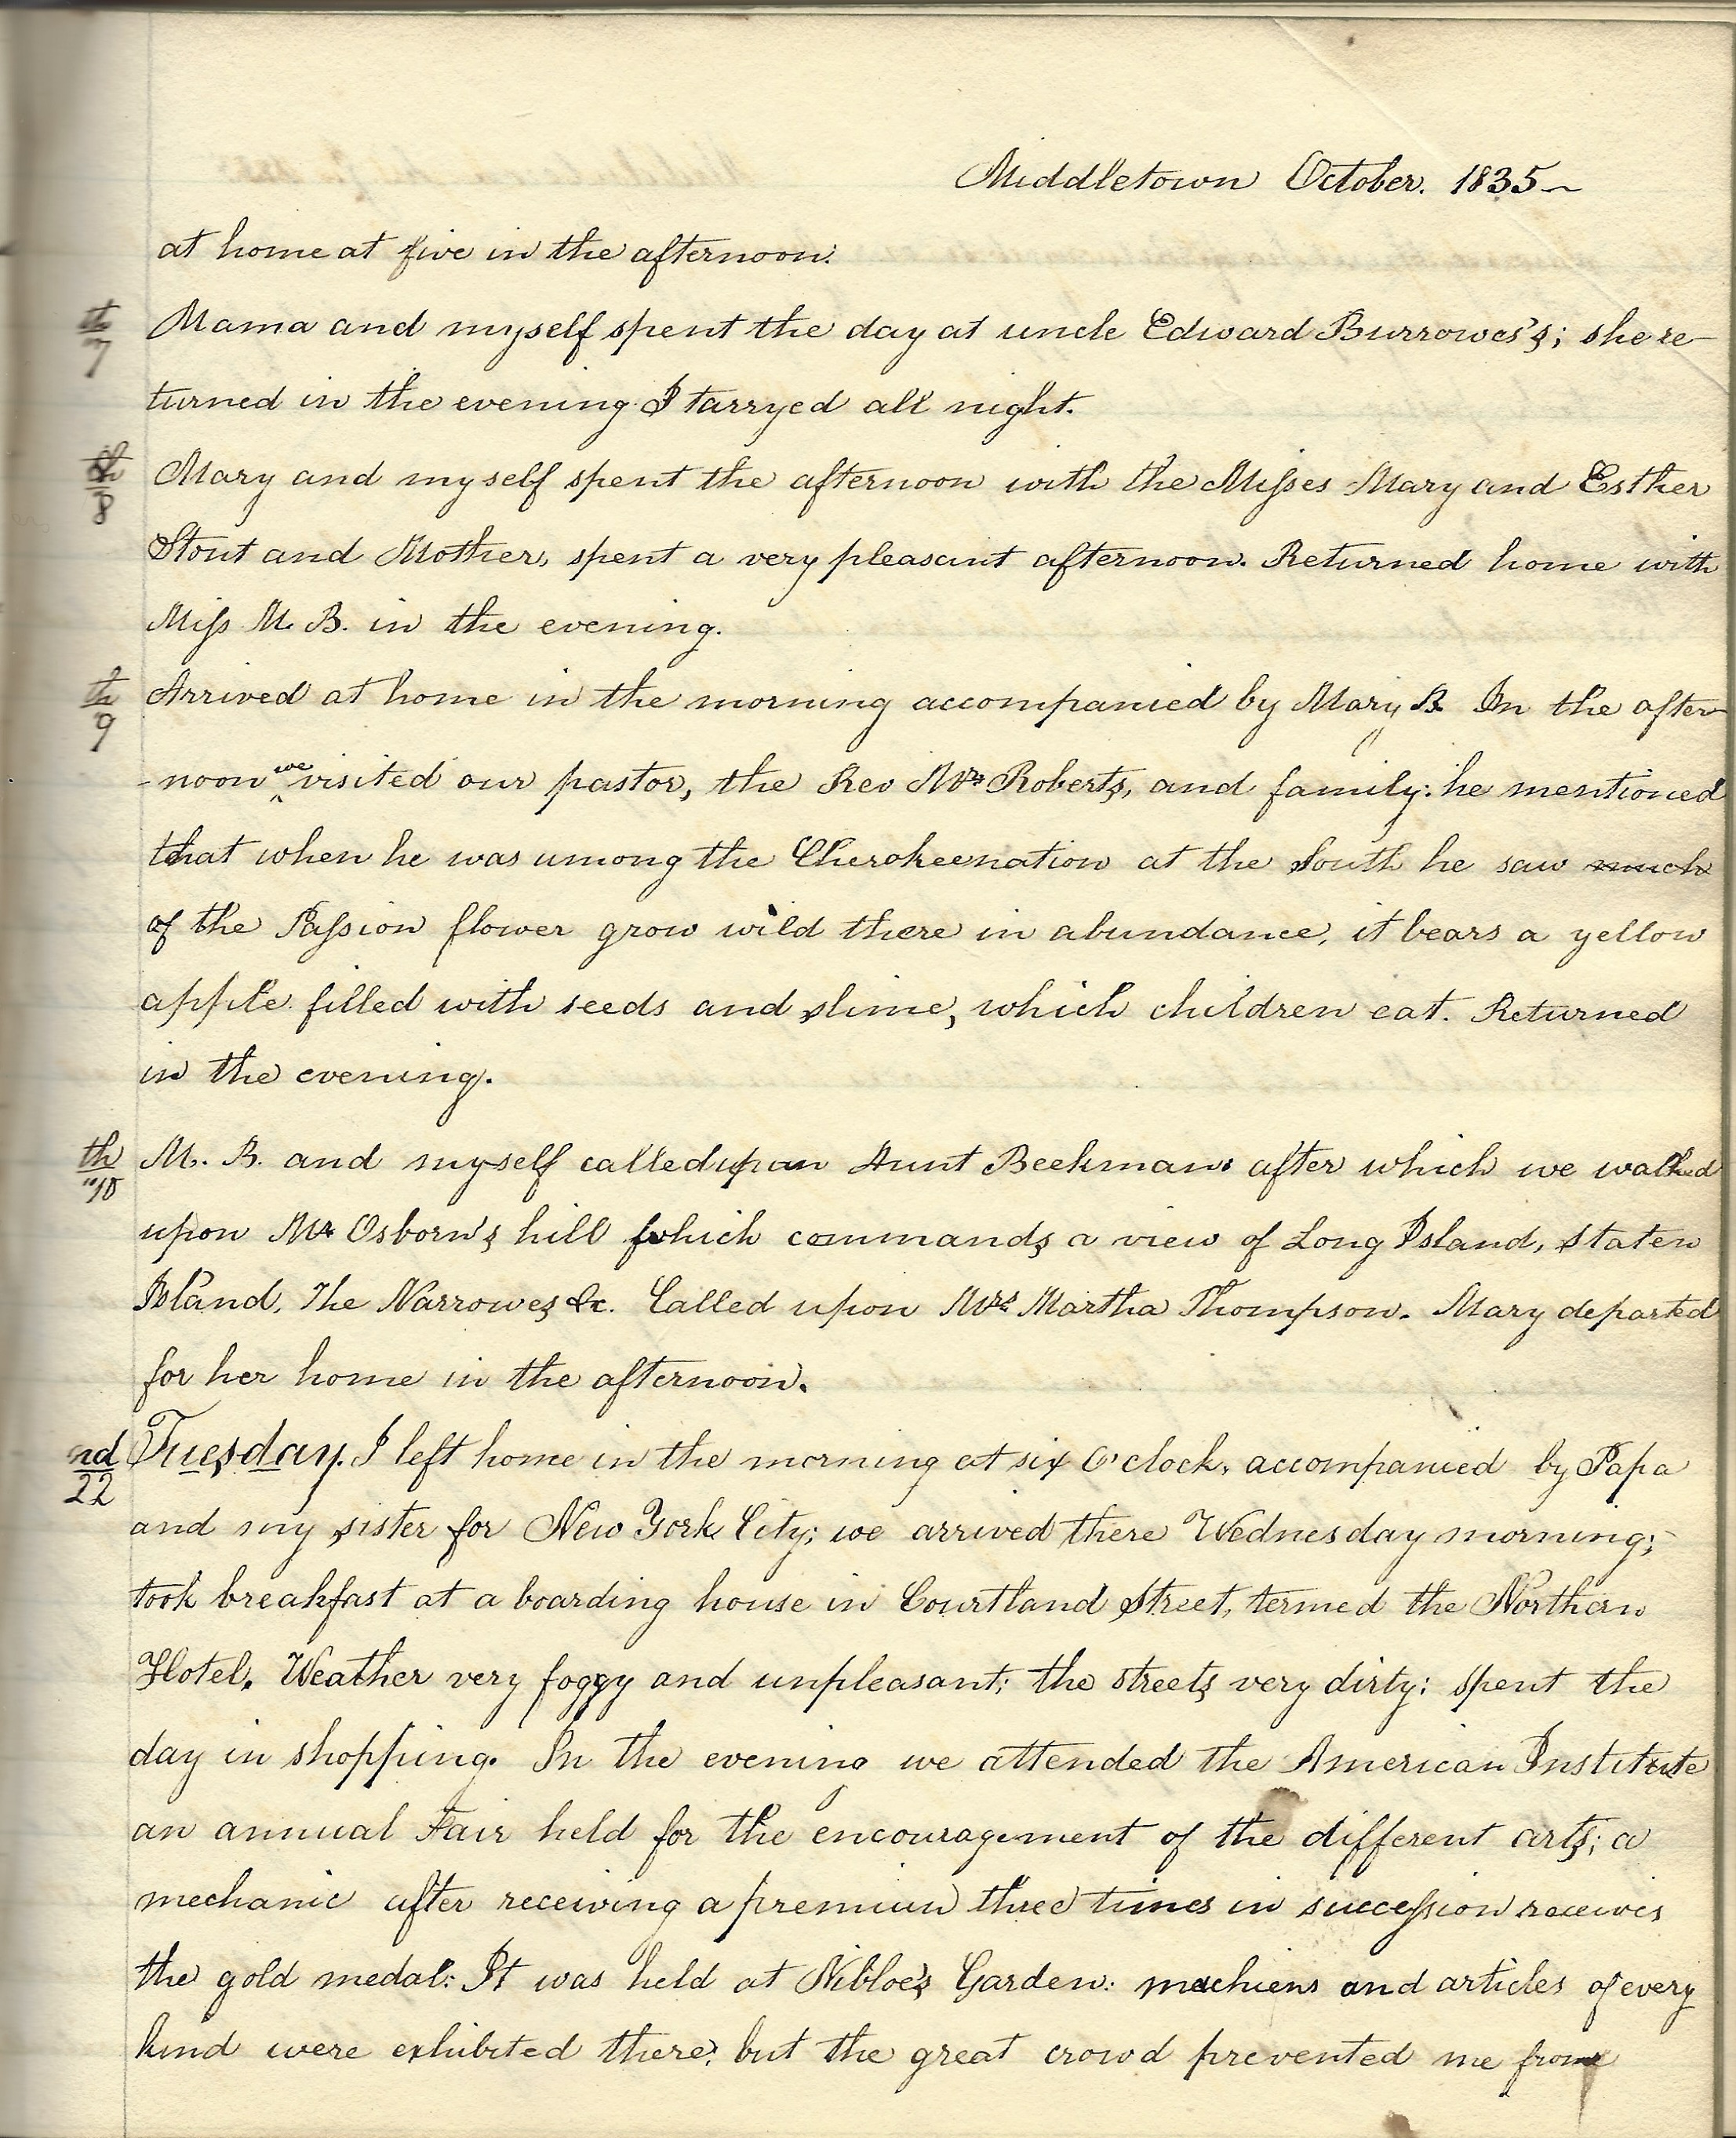 Middletown October. 1835~
at home at five in the afternoon.
th/7 Mama and myself spent the day at uncle Edward Burrowes's; she re-
turned in the evening. I tarryed all night.
th/8 Mary and myself spent the afternoon with the Misses Mary and Esther
Stout and Mother, spent a very pleasant afternoon. Returned home with
Miss M. B. in the evening.
th/9 Arrived at home in the morning accompanied by Mary B. In the after-
-noon we visited our pastor, the Rev Mr Roberts, and family: he mentioned
that when he was among the Cherokee nation at the South he saw much
of the Passion flower grow wild there in abundance, it bears a yellow
apple filled with seeds and slime, which children eat. Returned
in the evening.
th/"10 M. B. and myself called upon Aunt Beekman: after which we walked
upon Mr Osborn's hill which commands a view of Long Island, Staten
Island, The Narrowes &c. Called upon Mrs Martha Thompson. Mary departed
for her home in the afternoon.
nd/22 Tuesday. I left home in the morning at six O'clock, accompanied by Papa
and my sister for New York City; we arrived there Wednesday morning;
took breakfast at a boarding house in Courtland Street, termed the Northern
Hotel. Weather very foggy and unpleasant; the streets very dirty; spent the
day in shopping. In the evening we attended the American Institute
an annual Fair held for the encouragement of the different arts; a
mechanic after receiving a premium three times in succession receives
the gold medal: It was held at Nibloe's Garden: machiens and articles of every
kind were exhibited there, but the great crowd prevented me from